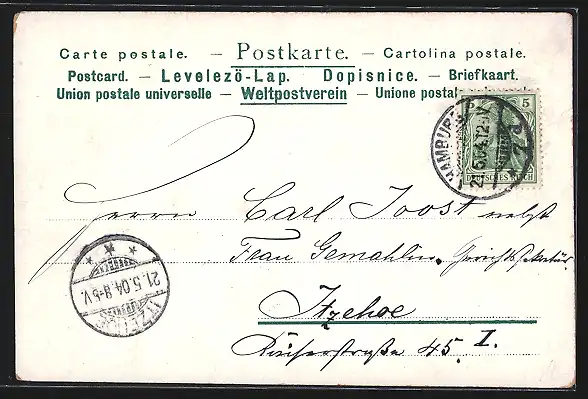 Carte postale. — Postkarte. — Cartolina postale.
Postcard. — Levelezö-Lap. Dopisnice. — Briefkaart.
Union postale universelle — Weltpostverein — Unione postale
5
DEUTSCHES REICH
HAMBURG
21.5.04.12-1V
Herrn Carl Joost nebst
Frau Gemahlin,
Itzehoe
45 I.
ITZEHOE
21.5.04.8-9V.